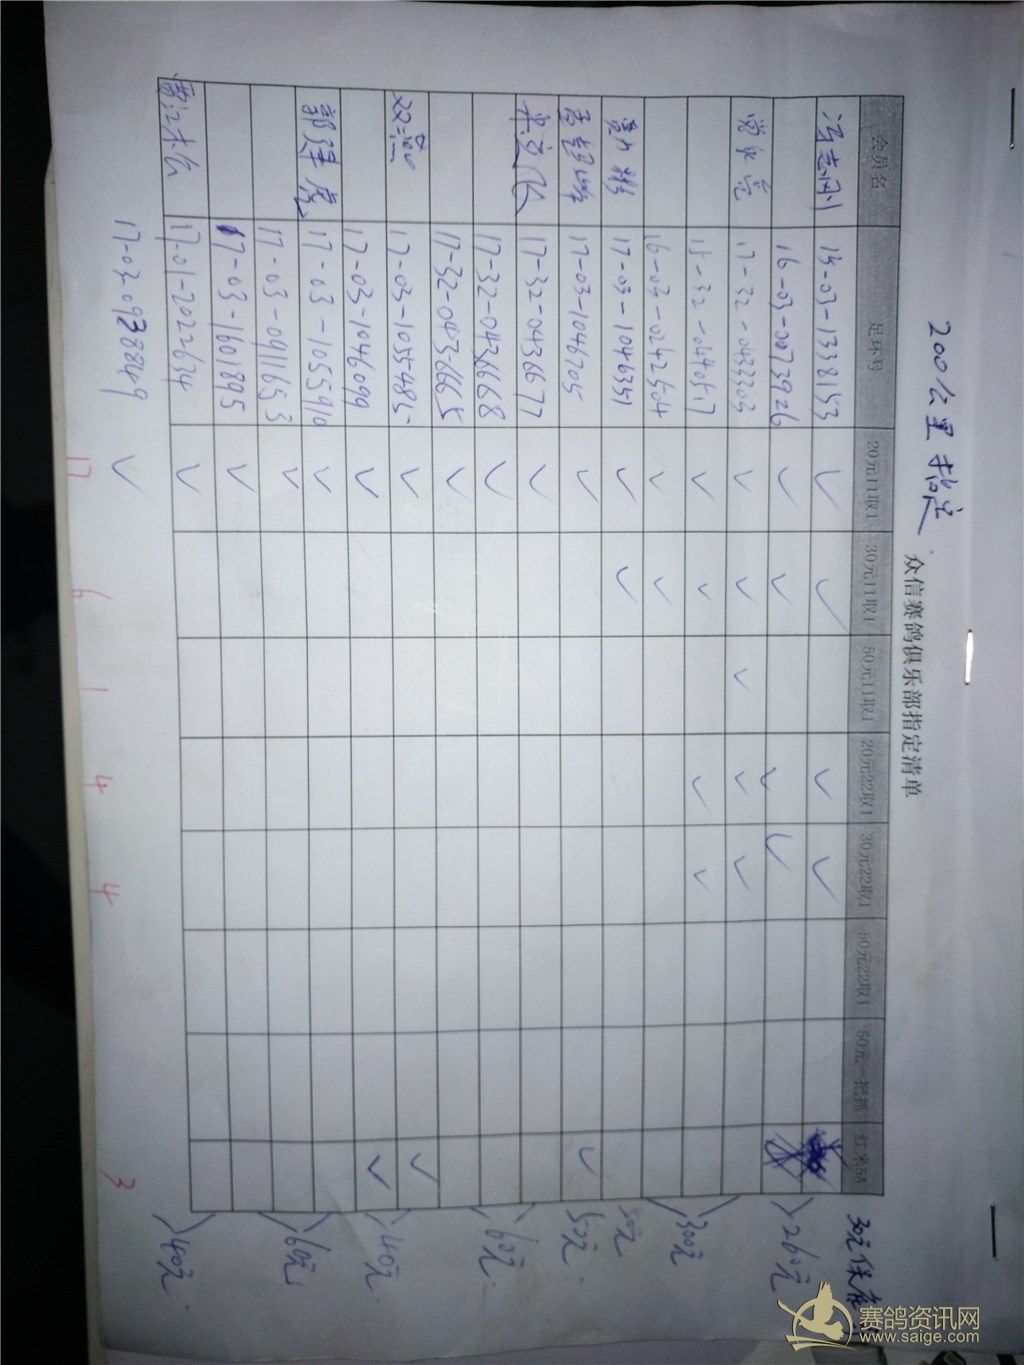 200公里指定
众信赛鸽俱乐部指定清单
会员名 足环号 20元11取1 30元11取1 50元11取1 20元22取1 30元22取1 50元22取1 50元一把抓 红米5A
30元保
冯志刚 15-03-1338153 ✓ ✓ ✓ ✓
16-03-0073926 ✓ ✓ ✓ ✓ 260元
常永亮 17-32-0433303 ✓ ✓ ✓ ✓ ✓
15-32-0440517 ✓ ✓ ✓ ✓ 300元
16-03-0242504 ✓ ✓
17-03-1046351 ✓ ✓ 50元
孟超峰 17-03-1046705 ✓ ✓ 50元
17-32-0436677 ✓
17-32-0436668 ✓ 60元
17-32-0436665 ✓
17-03-1055485 ✓ ✓
17-03-1046099 ✓ ✓ 140元
郭泽虎 17-03-1055910 ✓
17-03-0911653 ✓ 60元
17-03-1601895 ✓
17-01-2022634 ✓ 40元
17-03-0938849 ✓
17 6 1 4 4 3
赛鸽资讯网
www.saige.com